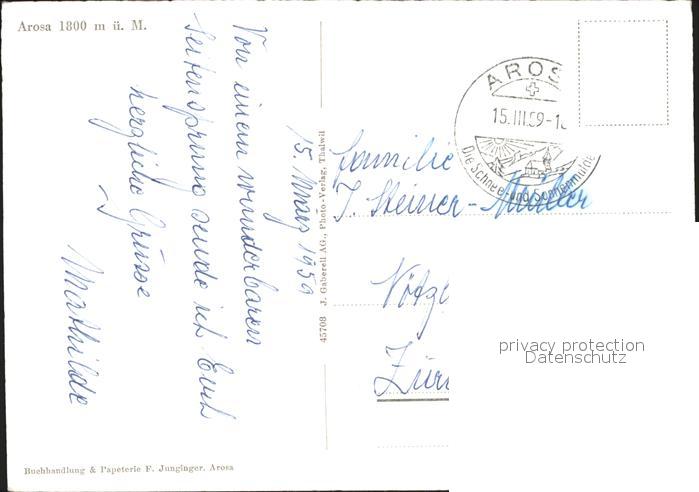 Arosa 1800 m ü. M.
Von einem wunderbaren
Seitensprung sende ich Euch
herzliche Grüsse
Mathilde
15. März 1959
45708 J. Gaberell AG., Photo-Verlag, Thalwil
AROS
15.III.59-1
Die Schnee- und Sonnenmulde
Familie
J. Steiner-
Zür
privacy protection
Datenschutz
Buchhandlung & Papeterie F. Junginger, Arosa